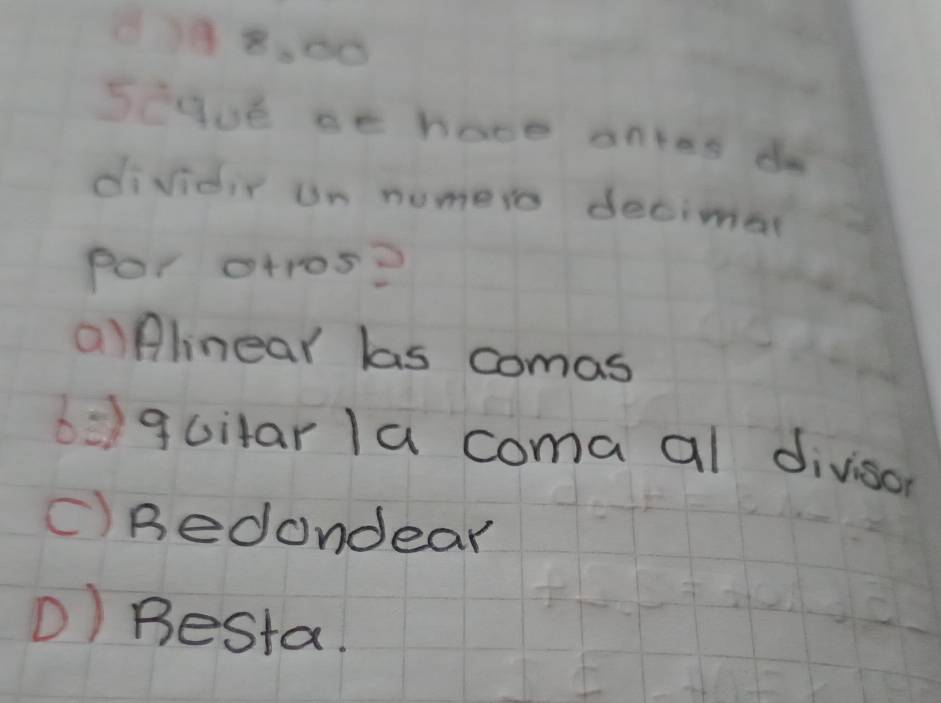 d) 8.00
5¿qué se hace antes de
dividir un numero decimal
por otros?
a) Alinear las comas
b) quitar la coma al divisor
C) Redondear
D) Resta.